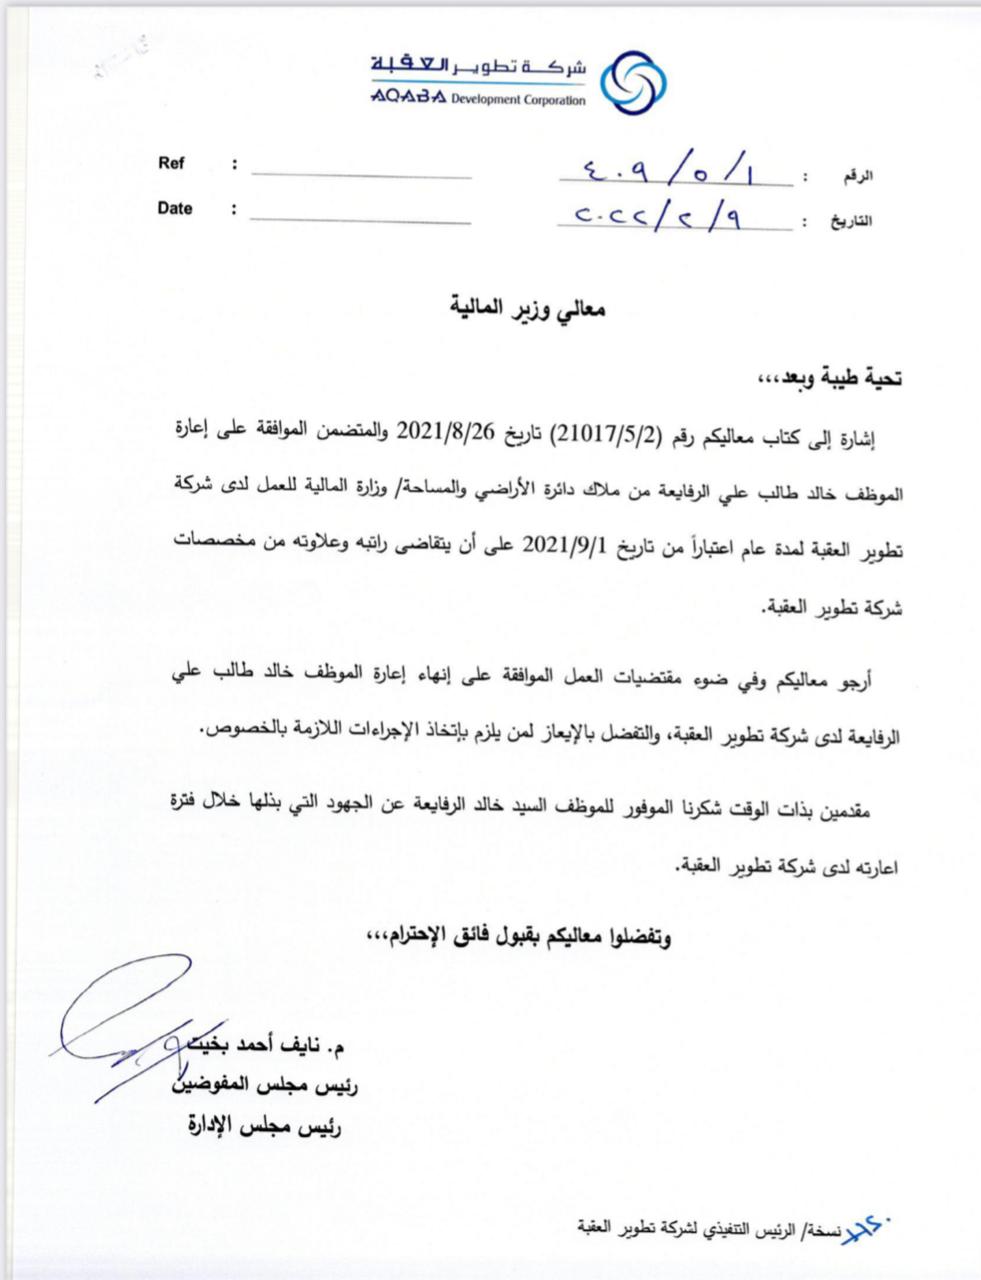 شركة تطوير العقبة
AQABA Development Corporation
الرقم : ٤٠٩/٥/١
Ref :
التاريخ : ٢٠٢٢/٢/٩
Date :
معالي وزير المالية
تحية طيبة وبعد،،،
إشارة إلى كتاب معاليكم رقم (21017/5/2) تاريخ 2021/8/26 والمتضمن الموافقة على إعارة
الموظف خالد طالب علي الرفايعة من ملاك دائرة الأراضي والمساحة/ وزارة المالية للعمل لدى شركة
تطوير العقبة لمدة عام اعتباراً من تاريخ 2021/9/1 على أن يتقاضى راتبه وعلاوته من مخصصات
شركة تطوير العقبة.
أرجو معاليكم وفي ضوء مقتضيات العمل الموافقة على إنهاء إعارة الموظف خالد طالب علي
الرفايعة لدى شركة تطوير العقبة، والتفضل بالإيعاز لمن يلزم بإتخاذ الإجراءات اللازمة بالخصوص.
مقدمين بذات الوقت شكرنا الموفور للموظف السيد خالد الرفايعة عن الجهود التي بذلها خلال فترة
اعارته لدى شركة تطوير العقبة.
وتفضلوا معاليكم بقبول فائق الإحترام،،،
م. نايف أحمد بخيت
رئيس مجلس المفوضين
رئيس مجلس الإدارة
نسخة/ الرئيس التنفيذي لشركة تطوير العقبة